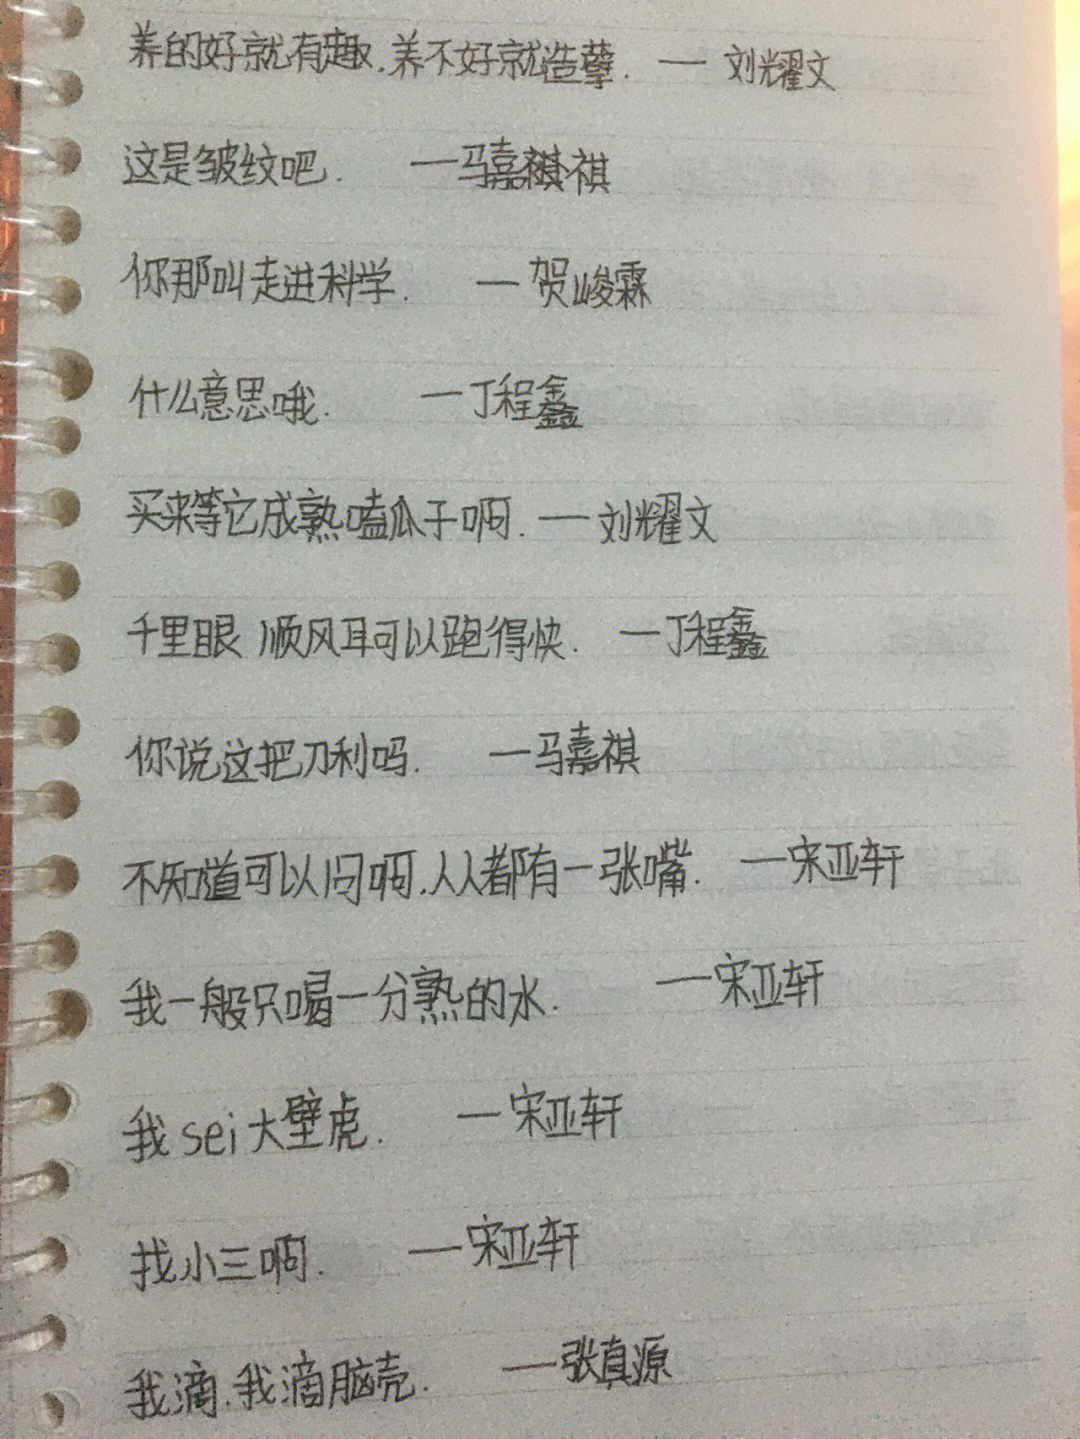 养的好就有趣.养不好就造孽. — 刘耀文
这是皱纹吧. —马嘉祺祺
你那叫走进科学. —贺峻霖
什么意思哦. —丁程鑫
买来等它成熟嗑瓜子啊. —刘耀文
千里眼 顺风耳可以跑得快. —丁程鑫
你说这把刀利吗. —马嘉祺
不知道可以问啊.人人都有一张嘴. —宋亚轩
我一般只喝一分熟的水. —宋亚轩
我sei大壁虎. —宋亚轩
找小三啊. —宋亚轩
我滴.我滴脑壳. —张真源